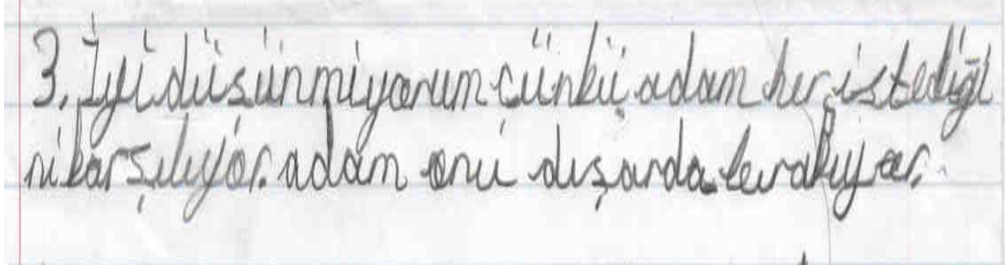 3. İyi düşünmiyorum çünkü adam her istediği
ni karşılıyor. adam onu dışarda bırakıyor.